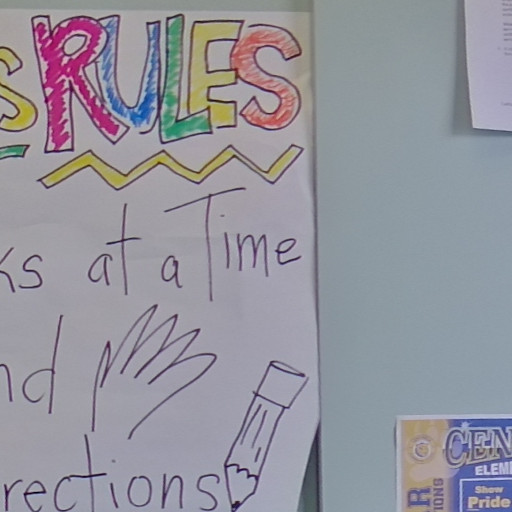 S RULES
ks at a Time
nd
rections
CEN
ELEM
Show
Pride